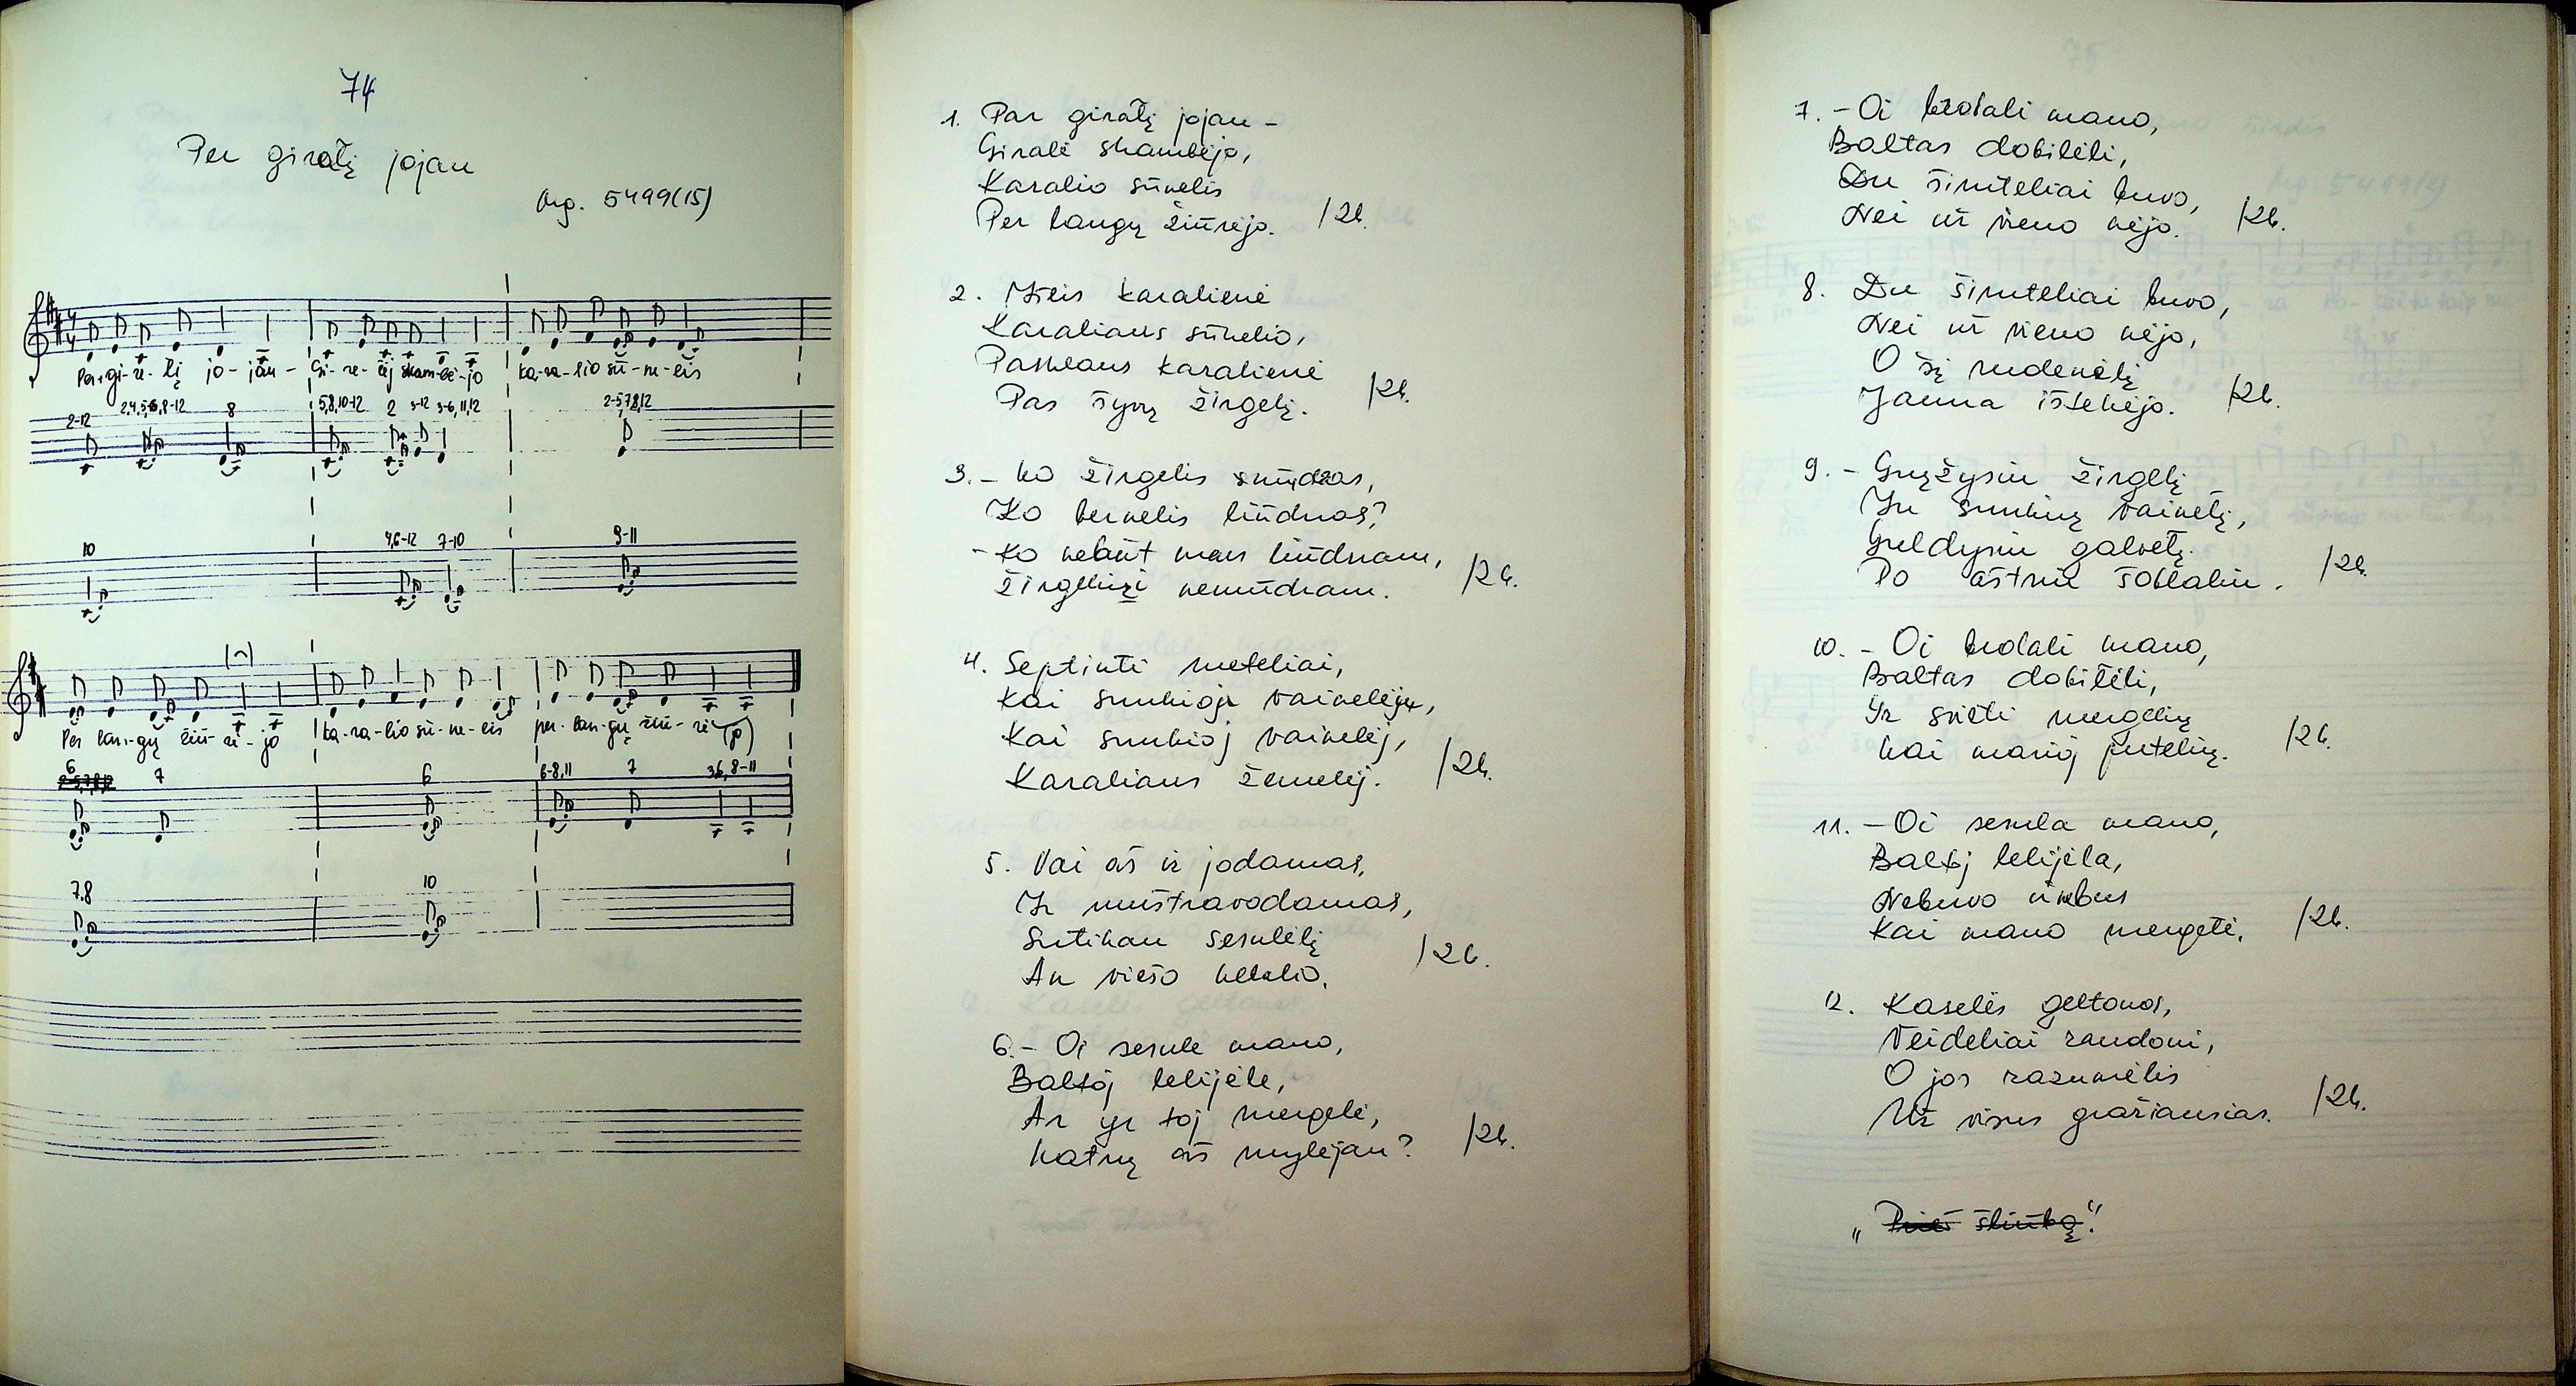 74
Per giratį jojau
Mg. 5499(15)
Per-gi-re-lį jo-jau- Gi-re-lėj skam-bė-jo ka-ra-lio sū-ne-lis
2-12 2,4,5,6,8-12 8 5,8,10-12 2 3-12 3-6,11,12 2-5,7,8,12
10 4,6-12 7-10 9-11
Per lan-gų žiū-rė-jo ka-ra-lio sū-ne-lis per-lan-gų žiū-rė-(jo)
6 7 6 6-8,11 7 3,6,8-11
7.8 10
1. Par giratį jojau -
Giralė skambėjo,
Karalio sūnelis
Per langų žiūrėjo. /2k.
2. Išeis karalienė
Karaliaus sūnelio,
Pasklaus karalienė
Pas šyvų žirgelį. /2k.
3. - Ko žirgelis smūdnas,
Ko bernelis liūdnas?
- Ko nebūt man liūdnam,
Žirgeliuži nemūdnam. /2k.
4. Septinti meteliai,
Kai sunkioju vainelėju,
Kai sunkioj vainelėj,
Karaliaus žemelėj. /2k.
5. Vai aš ir jodamas,
Ir muštravodamas,
Sutikau sesulėlį
An viešo kelelio. /2k.
6. - Oi sesule mano,
Baltoj lelijėle,
Ar yr toj mergelė,
Katrų aš mylėjau? /2k.
7. - Oi brolali mano,
Baltas dobilėli,
Du šimteliai buvo,
Nei už vieno nėjo. /2k.
8. Du šimteliai buvo,
Nei už vieno nėjo,
O šį rudenėlį
Jauna ištekėjo. /2k.
9. - Gręžysiu žirgelį
In sunkių vainelį,
Guldysiu galvelį
Po aštriu šoblaliu. /2k.
10. - Oi brolali mano,
Baltas dobilėli,
Yr svieti mergelių
Kai marioj putelių. /2k.
11. - Oi sesula mano,
Baltoj lelijėla,
Nebuvo ir nebus
Kai mano mergelė. /2k.
12. Kaselės geltonos,
Veideliai raudoni,
O jos razumėlis
Už visus gražiausias. /2k.
„Prieš šliūbą“.